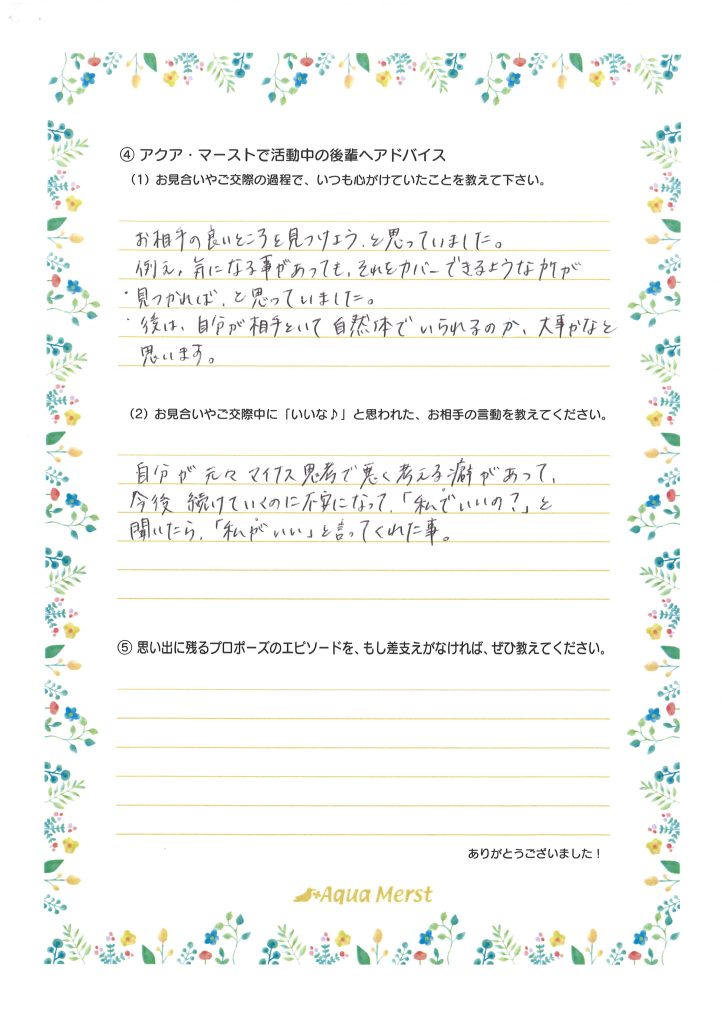 ④ アクア・マーストで活動中の後輩へアドバイス
（1）お見合いやご交際の過程で、いつも心がけていたことを教えて下さい。
お相手の良いところを見つけよう、と思っていました。
例え、気になる事があっても、それをカバーできるような所が
・見つかれば、と思っていました。
・後は、自分が相手といて自然体でいられるのか、大事かなと
思います。
（2）お見合いやご交際中に「いいな♪」と思われた、お相手の言動を教えてください。
自分が元々マイナス思考で悪く考える癖があって、
今後続けていくのに不安になって、「私でいいの？」と
聞いたら、「私がいい」と言ってくれた事。
⑤ 思い出に残るプロポーズのエピソードを、もし差支えがなければ、ぜひ教えてください。
ありがとうございました！
Aqua Merst